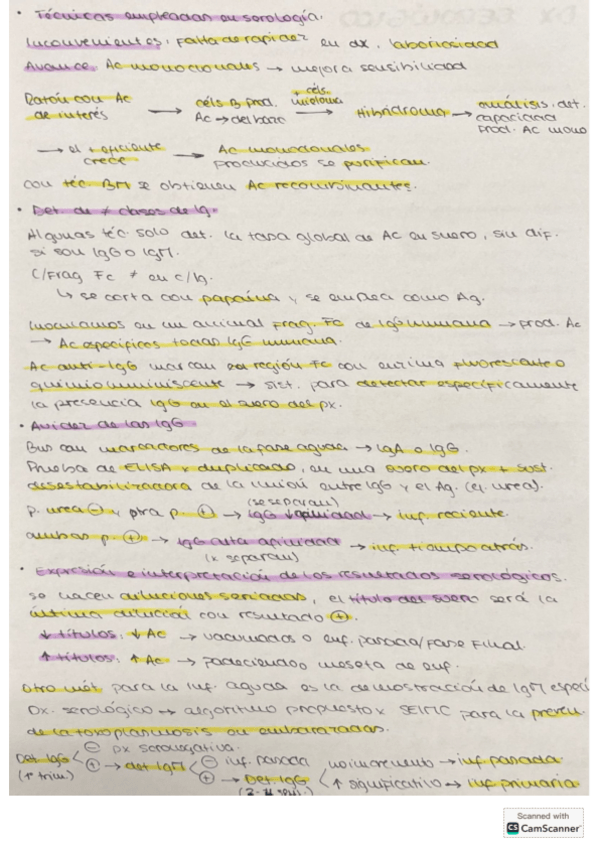 • Técnicas empleadas en serología.
Inconvenientes: Falta de rapidez en dx, laboriosidad
Avance. Ac monoclonales → mejora sensibilidad
Ratón con Ac de interés → céls B prod. Ac → del bazo + céls. mieloma → Hibridroma → análisis. det. capacidad prod. Ac mono
→ el + eficiente crece → Ac monoclonales producidos se purifican.
con téc. BM se obtienen Ac recombinantes.
• Det. de ≠ clases de Ig.
Algunas téc. solo det. la tasa global de Ac en suero, sin dif.
si son IgG o IgM.
C/Frag Fc ≠ en c/Ig.
↳ se corta con papaína y se emplea como Ag.
Inoculamos en un animal Frag. Fc de IgG humana → prod. Ac
→ Ac específicos todas IgG humana.
Ac anti-IgG marcan en región Fc con enzima fluorescante o
quimioluminiscente → sist. para detectar específicamente
la presencia IgG en el suero del px.
• Avidez de las IgG
Buscan marcadores de la fase aguda → IgA o IgG.
Prueba de ELISA x duplicado, en una suero del px + sust.
desestabilizadora de la unión entre IgG y el Ag. (ej. urea).
p. urea ⊖ y otra p. ⊕ → IgG ↓ afinidad → inf. reciente.
(se separan)
ambas p. ⊕ → IgG alta afinidad → inf. tiempo atrás.
(x separan)
• Expresión e interpretación de los resultados serológicos.
se hacen diluciones seriadas, el título del suero será la
última dilución con resultado ⊕.
↓ títulos: ↓ Ac → vacunados o enf. pasada/fase Final.
↑ títulos: ↑ Ac → padeciendo, meseta de enf.
Otro mét. para la inf. aguda es la demostración de IgM especí
Dx. serológico → algoritmo propuesto x SEIMC para la preven.
de la toxoplasmosis en embarazadas.
Det IgG (1er trim) ⊖ Dx seronegativa.
⊕ → det IgM ⊖ inf. pasada
⊕ → Det IgG no incremento → inf. pasada
↑ significativo → inf primaria
Scanned with
CS CamScanner